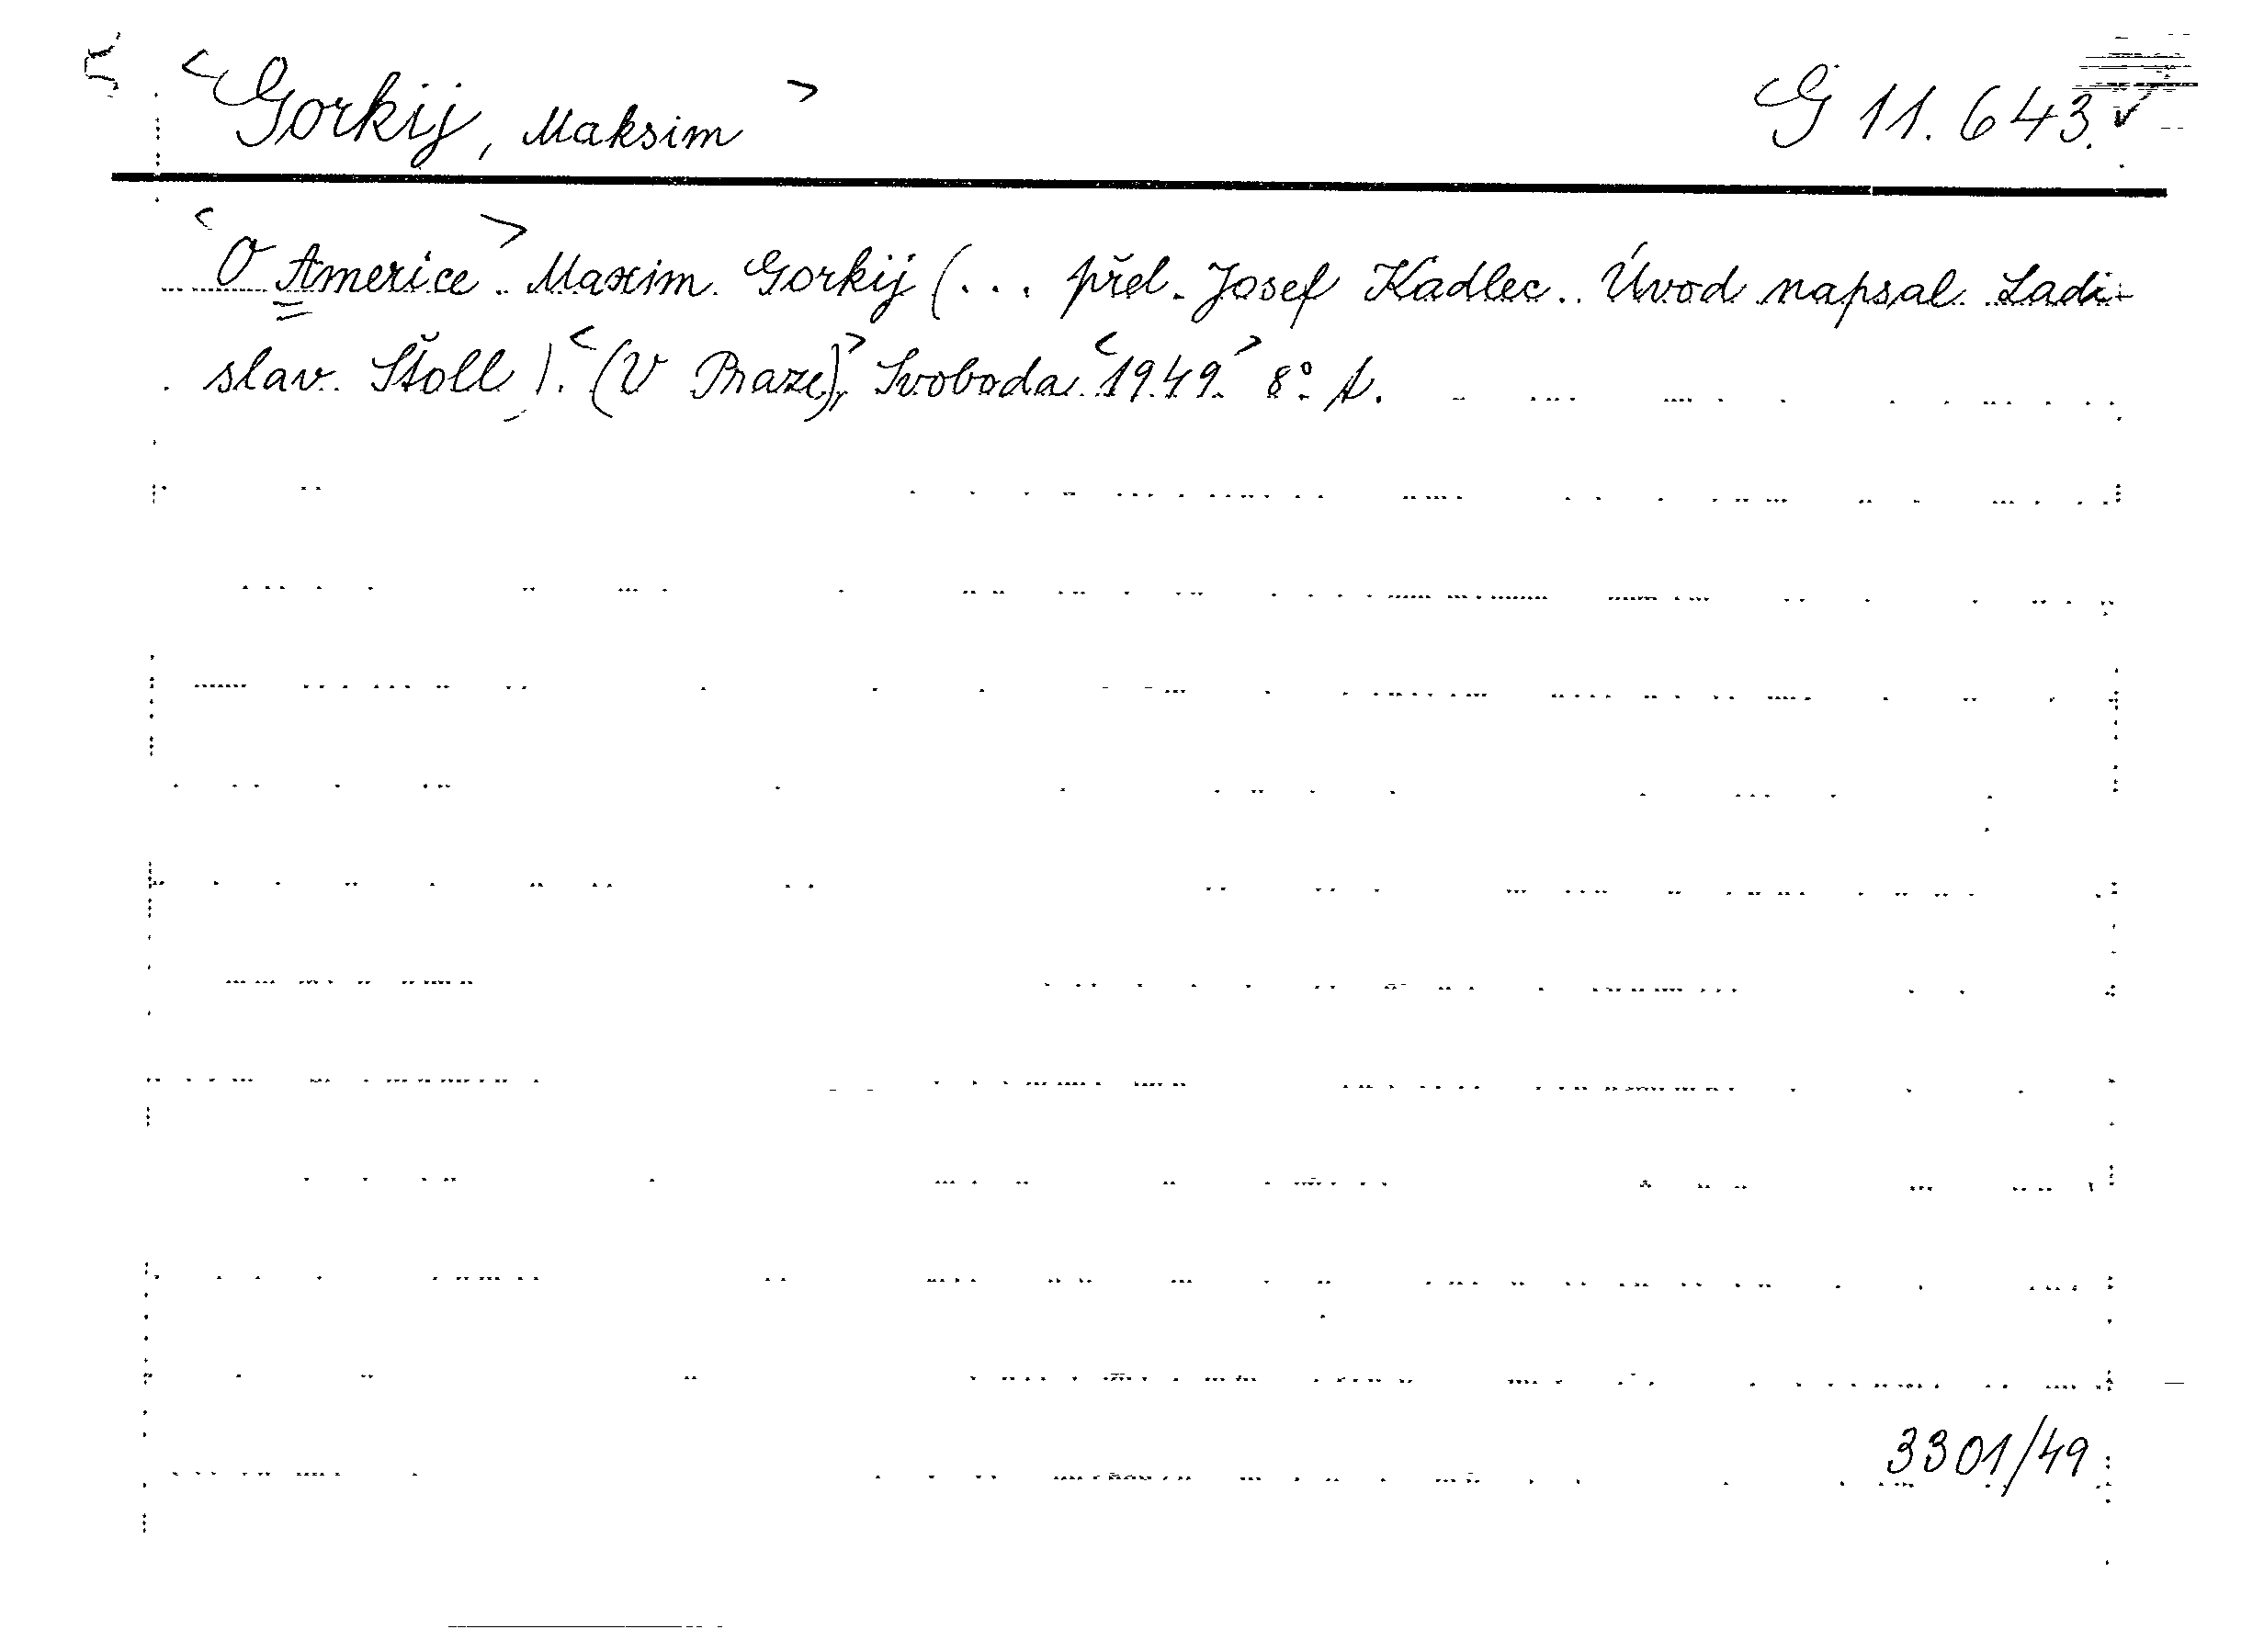 <Gorkij, Maksim> G 11.643.
<O Americe>. Maxim Gorkij (... přel. Josef Kadlec. Úvod napsal Ladi-
slav Štoll). <(V Praze),> Svoboda <1949.> 8°.
3301/49